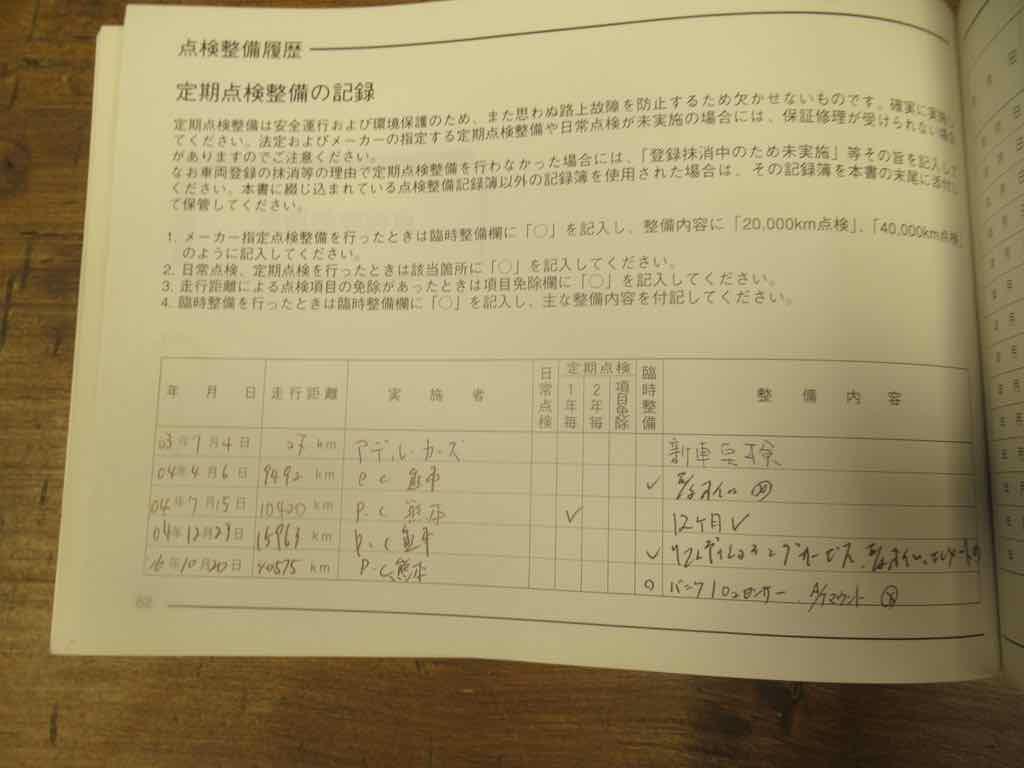 点検整備履歴
定期点検整備の記録
定期点検整備は安全運行および環境保護のため、また思わぬ路上故障を防止するため欠かせないものです。確実に実施し
てください。法定およびメーカーの指定する定期点検整備や日常点検が未実施の場合には、保証修理が受けられない場合
がありますのでご注意ください。
なお車両登録の抹消等の理由で定期点検整備を行わなかった場合には、「登録抹消中のため未実施」等その旨を記入して
ください。本書に綴じ込まれている点検整備記録簿以外の記録簿を使用された場合は、その記録簿を本書の末尾に添付し
て保管してください。
1. メーカー指定点検整備を行ったときは臨時整備欄に「○」を記入し、整備内容に「20,000km点検」、「40,000km点検」
のように記入してください。
2. 日常点検、定期点検を行ったときは該当箇所に「○」を記入してください。
3. 走行距離による点検項目の免除があったときは項目免除欄に「○」を記入してください。
4. 臨時整備を行ったときは臨時整備欄に「○」を記入し、主な整備内容を付記してください。
年 月 日 走行距離 実施者 日常点検 定期点検 1年毎 2年毎 項目免除 臨時整備 整備内容
03年7月4日 km アデル・カーズ 新車点検
04年4月6日 9492 km P.C 熊本 ✓
04年7月15日 10420 km P.C 熊本 ✓ 12ヶ月 ✓
04年12月23日 15963 km P.C 熊本 ✓
16年10月20日 km P.C 熊本 ○
62